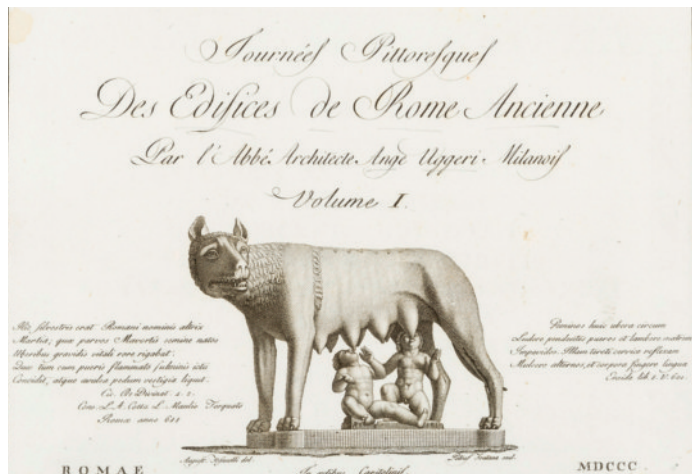 Journées Pittoresques
Des Edifices de Rome Ancienne
Par l'Abbé Architecte Ange Uggeri Milanois
Volume I.
Hic silvestris erat Romani nominis altrix
Martia, quæ parvos Mavortis semine natos
Uberibus gravidis vitali rore rigabat.
Quæ tum cum pueris flammato fulminis ictu
Concidit, atque avolsa pedum vestigia liquit.
Cic. De Divinat. L. 2.
Cons. L. A. Cotta L. Manlio Torquato
Romæ anno
Geminos huic ubera circum
Ludere pendentes pueros et lambere matrem
Impavidos. Illam tereti cervice reflexam
Mulcere alternos, et corpora fingere lingua
del.
In ædibus Capitolinis
ROMAE
MDCCC